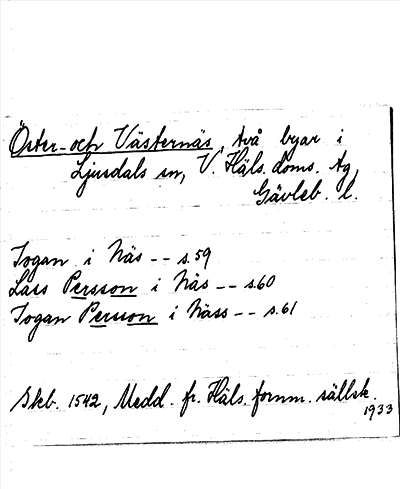 Öster- och Västernäs, två byar i
Ljusdals sn, V. Häls. doms. tg,
Gävleb. l.
Jogan i Näs -- s. 59
Lass Persson i Näs -- s. 60
Jogan Persson i Näss -- s. 61
Skb. 1542, Medd. fr. Häls. fornm. sällsk.
1933